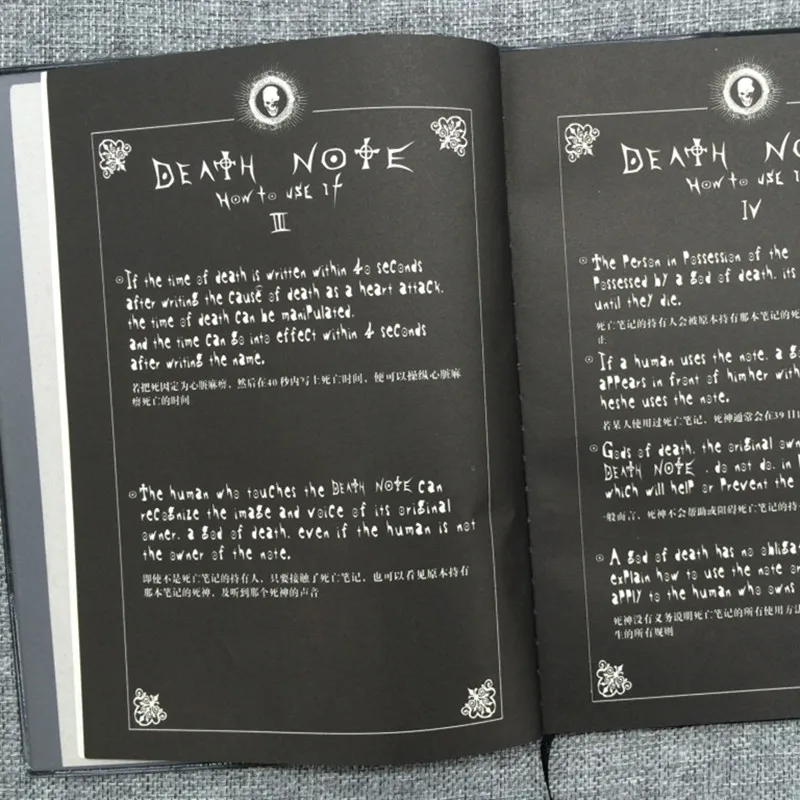 DEATH NOTE
HOW TO USE IT
III
If the time of death is written within 40 seconds
after writing the cause of death as a heart attack.
the time of death can be manipulated.
and the time can go into effect within 4 seconds
after writing the name.
若把死因定为心脏麻痹，然后在40秒内写上死亡时间，便可以操纵心脏麻
痹死亡的时间
The human who touches the DEATH NOTE can
recognize the image and voice of its original
owner. a god of death. even if the human is not
the owner of the note.
即使不是死亡笔记的持有人，只要接触了死亡笔记，也可以看见原本持有
那本笔记的死神，及听到那个死神的声音
DEATH NO
HOW TO USE I
IV
The Person in Possession of the
Possessed by a god of death. its
until they die.
死亡笔记的持有人会被原本持有那本笔记的死
止
If a human uses the note. a g
appears in front of himher with
heshe uses the note.
若某人使用过死亡笔记，死神通常会在39日
Gods of death. the original own
DEATH NOTE . do not do. in
which will help or Prevent the
一般而言，死神不会帮助或阻碍死亡笔记的持
A god of death has no obliga
explain how to use the note or
apply to the human who owns
死神没有义务说明死亡笔记的所有使用方法
生的所有规则